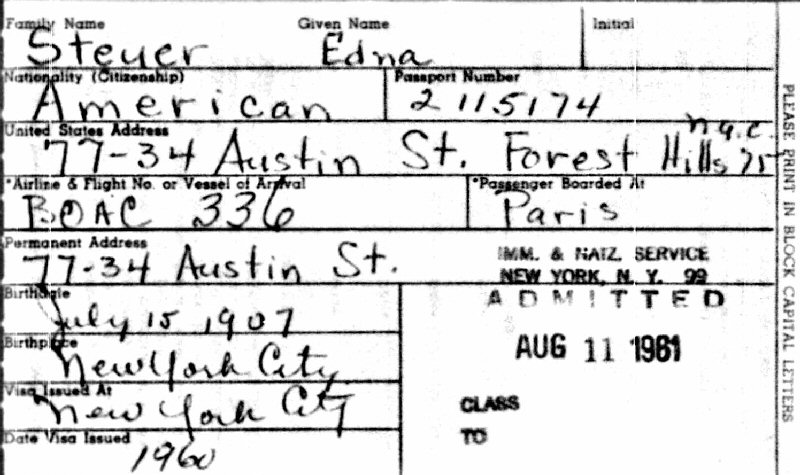 Family Name Given Name Initial
Steuer Edna
Nationality (Citizenship) Passport Number
American 2115174
United States Address
77-34 Austin St. Forest Hills 75 n.y.c.
*Airline & Flight No. or Vessel of Arrival *Passenger Boarded At
BOAC 336 Paris
Permanent Address
77-34 Austin St.
IMM. & NATZ. SERVICE
NEW YORK, N. Y. 99
ADMITTED
AUG 11 1961
CLASS
TO
Birthdate
July 15 1907
Birthplace
New York City
Visa Issued At
New York City
Date Visa Issued
1960
PLEASE PRINT IN BLOCK CAPITAL LETTERS